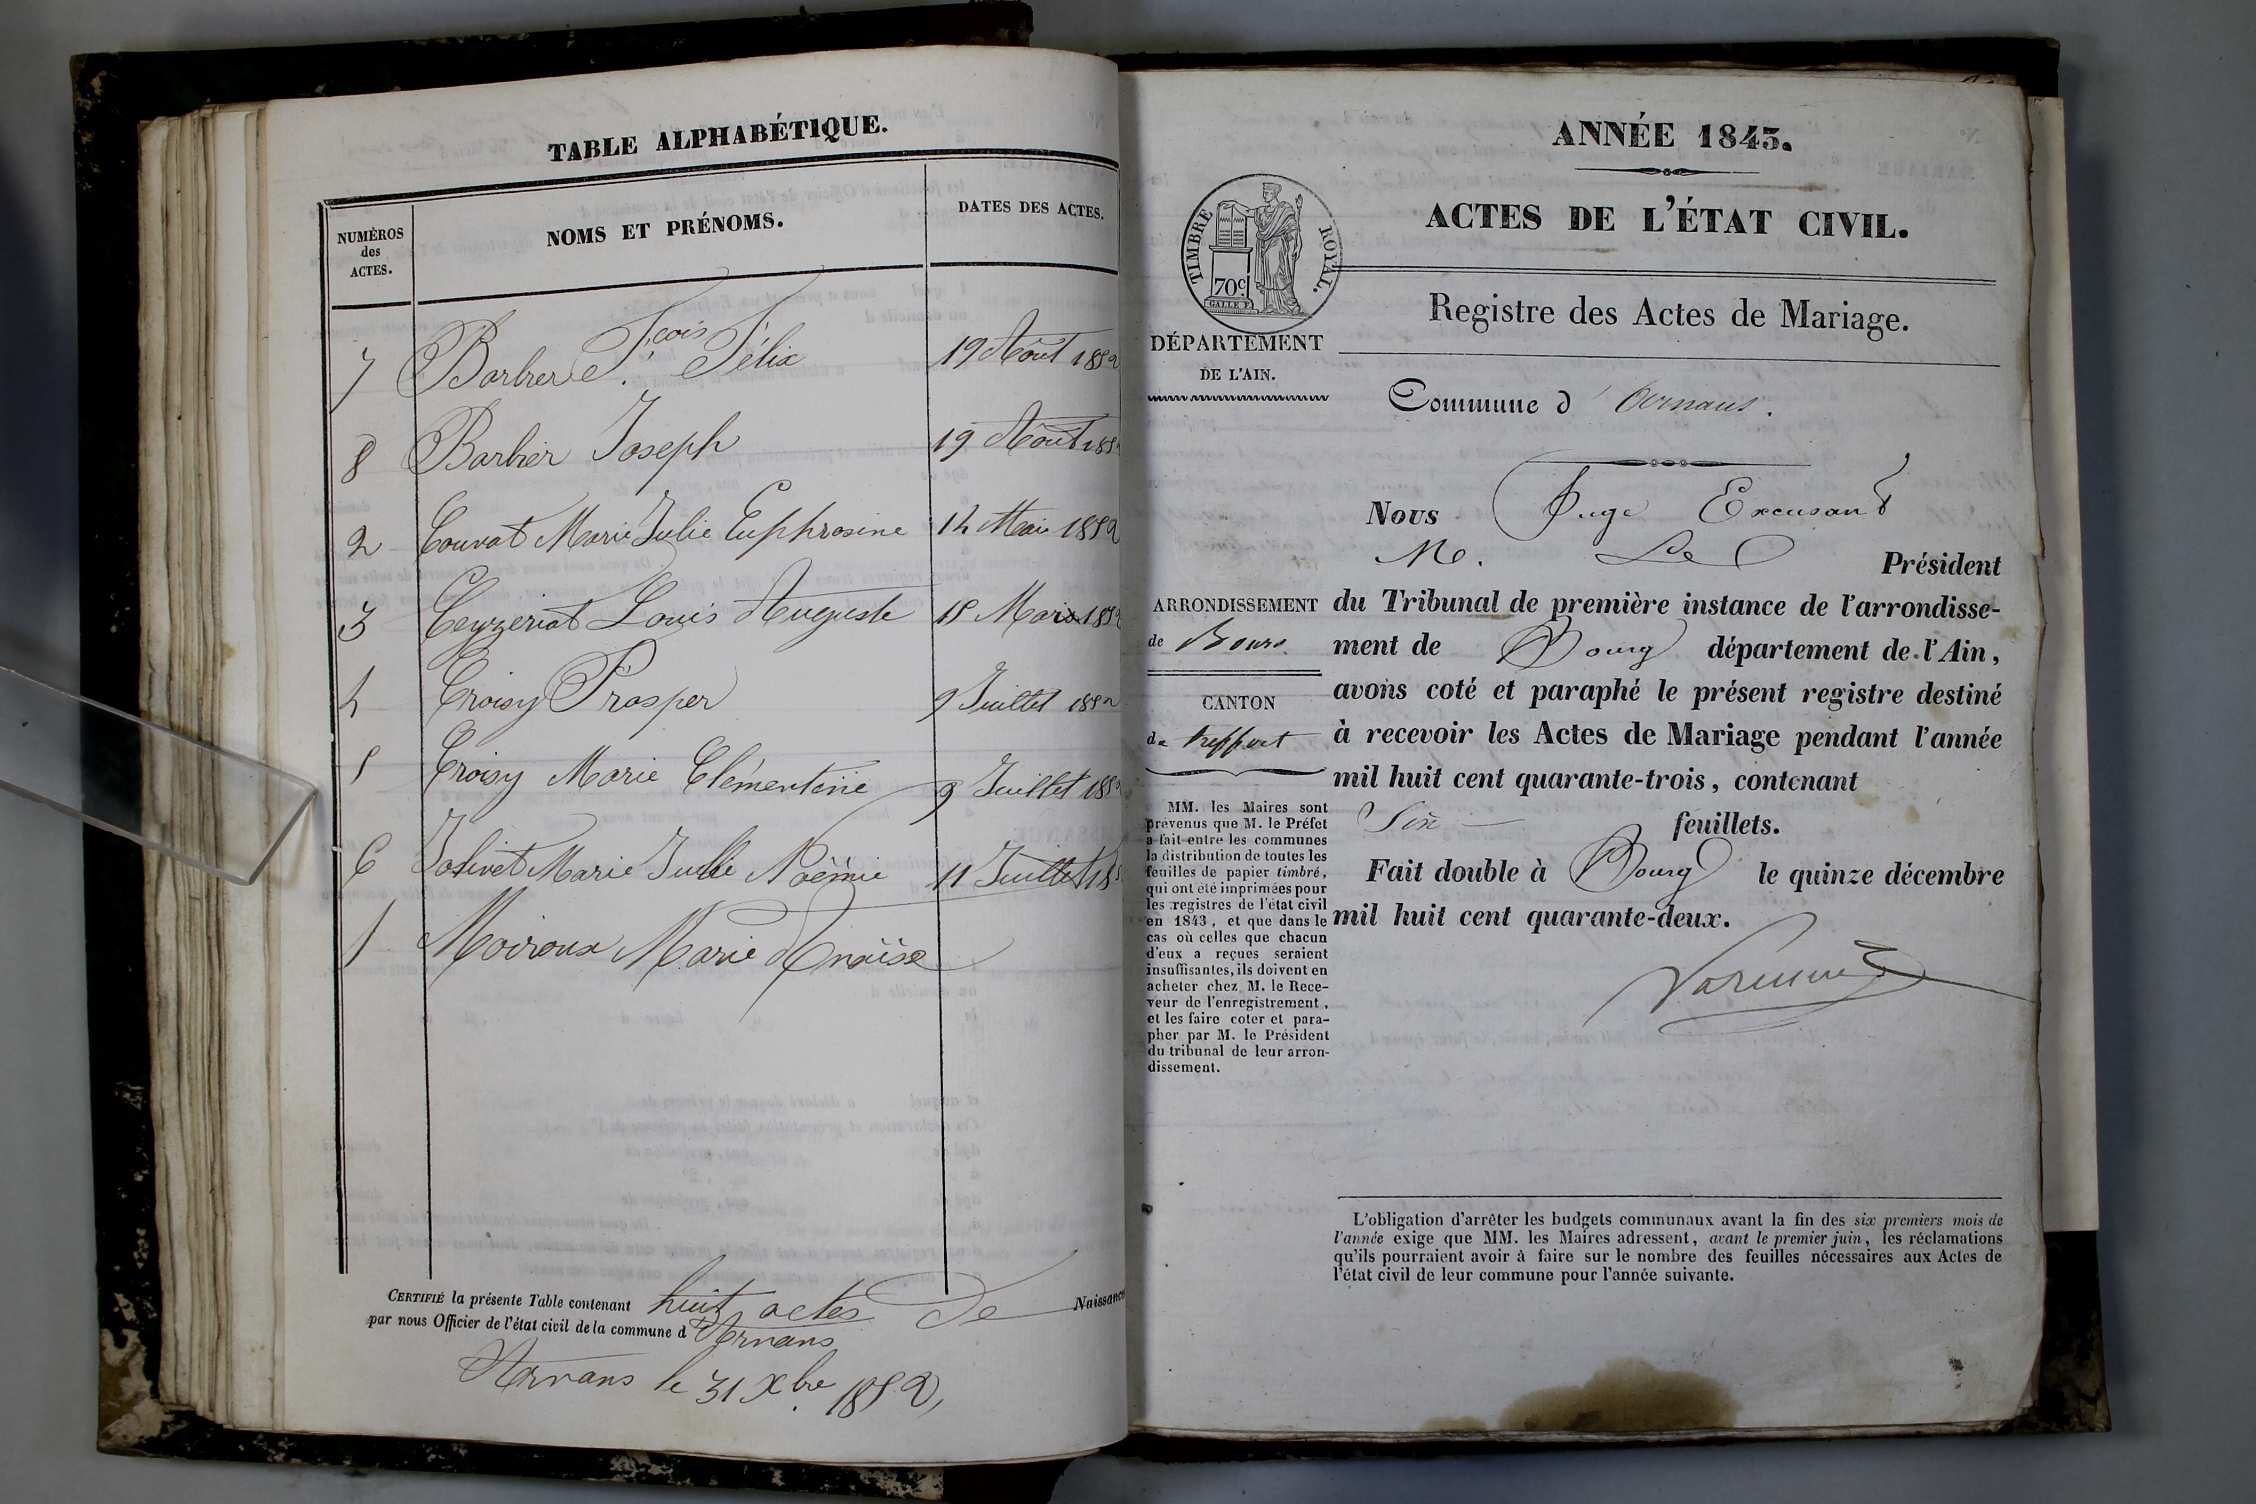 TABLE ALPHABÉTIQUE.
NUMÉROS des ACTES. NOMS ET PRÉNOMS. DATES DES ACTES.
7 Barbier F.çois Félix 19 Août 1852
8 Barbier Joseph 19 Août 185
2 Couvat Marie Julie Euphrosine 14 Mai 1852
3 Ceyzeriat Louis Auguste 18 Mai 1852
4 Croisy Prosper 9 Juillet 1852
5 Croisy Marie Clémentine 9 Juillet 1852
6 Jolivet Marie Julie Noëmie 11 Juillet 185
1 Moiroux Marie Anaïse
CERTIFIÉ la présente Table contenant huit actes De Naissance
par nous Officier de l'état civil de la commune d'Arnans
Arnans le 31 Xbre. 1852,
ANNÉE 1843.
ACTES DE L'ÉTAT CIVIL.
TIMBRE ROYAL.
70c.
GALLE F.
Registre des Actes de Mariage.
DÉPARTEMENT
DE L'AIN.
Commune d' Arnans.
Nous Juge Excusant
M. Le Président
ARRONDISSEMENT
de Bourg
CANTON
de Treffort
du Tribunal de première instance de l'arrondisse-
ment de Bourg département de l'Ain,
avons coté et paraphé le présent registre destiné
à recevoir les Actes de Mariage pendant l'année
mil huit cent quarante-trois, contenant
Six feuillets.
Fait double à Bourg le quinze décembre
mil huit cent quarante-deux.
MM. les Maires sont
prévenus que M. le Préfet
a fait entre les communes
la distribution de toutes les
feuilles de papier timbré,
qui ont été imprimées pour
les registres de l'état civil
en 1843, et que dans le
cas où celles que chacun
d'eux a reçues seraient
insuffisantes, ils doivent en
acheter chez M. le Rece-
veur de l'enregistrement,
et les faire coter et para-
pher par M. le Président
du tribunal de leur arron-
dissement.
L'obligation d'arrêter les budgets communaux avant la fin des six premiers mois de
l'année exige que MM. les Maires adressent, avant le premier juin, les réclamations
qu'ils pourraient avoir à faire sur le nombre des feuilles nécessaires aux Actes de
l'état civil de leur commune pour l'année suivante.